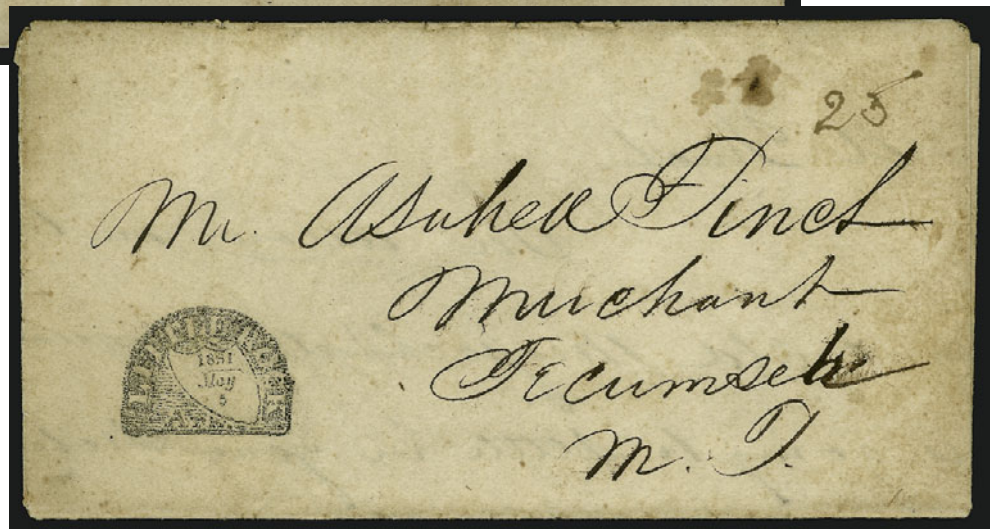 25
Mr. Asahel Finch
Merchant
Tecumseh
M. T.
1831
May
5